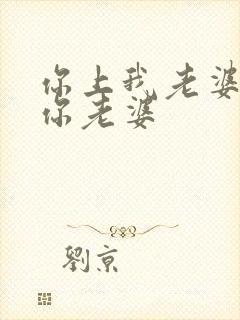 你上我老婆
你老婆
劉京